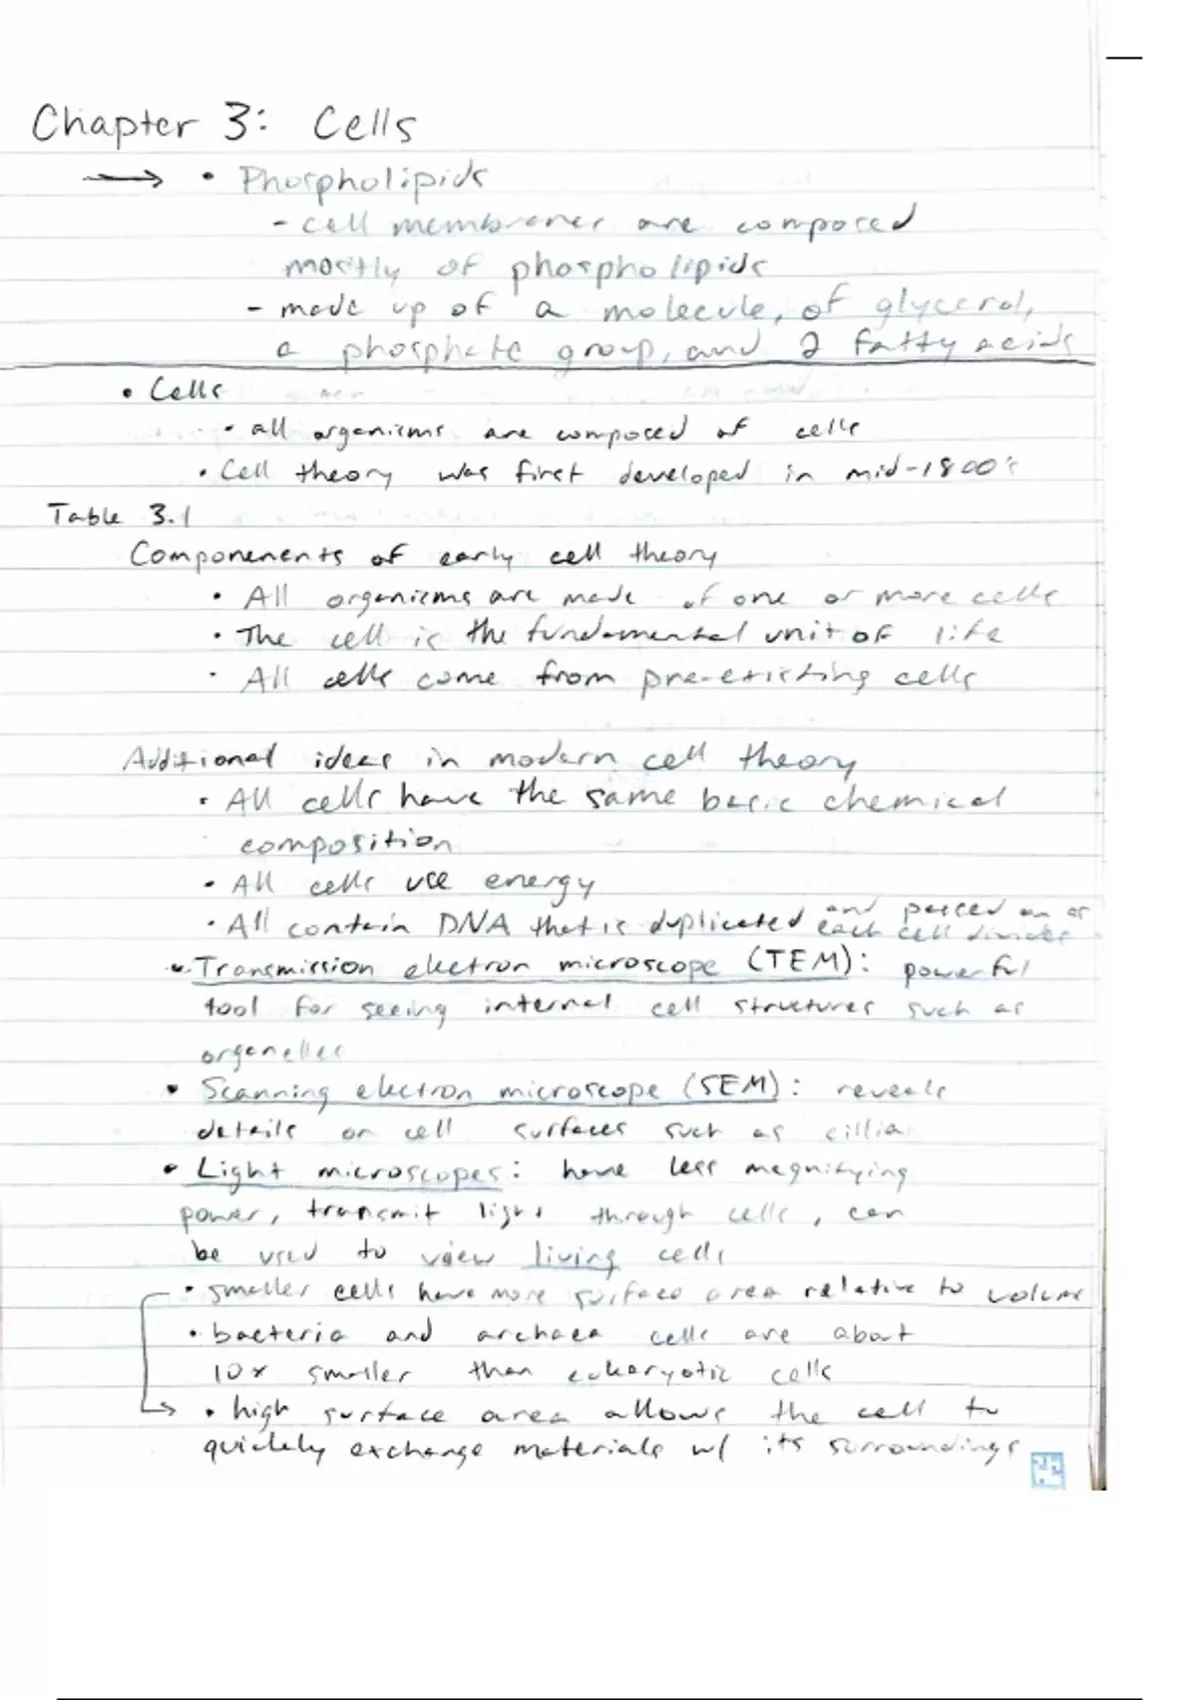 Chapter 3: Cells
→ • Phospholipids
- cell membranes are composed
mostly of phospholipids
- made up of a molecule, of glycerol,
a phosphate group, and 2 fatty acids
• Cells
• all organisms are composed of cells
• Cell theory was first developed in mid-1800's
Table 3.1
Componenents of early cell theory
• All organisms are made of one or more cells
• The cell is the fundamental unit of life
• All cells come from pre-existing cells
Additional ideas in modern cell theory
• All cells have the same basic chemical
composition
• All cells use energy
• All contain DNA that is duplicated and passed on as
each cell divides
• Transmission electron microscope (TEM): powerful
tool for seeing internal cell structures such as
organelles
• Scanning electron microscope (SEM): reveals
details on cell surfaces such as cillia
• Light microscopes: have less magnifying
power, transmit light through cells, can
be used to view living cells
• smaller cells have more surface area relative to volume
• bacteria and archaea cells are about
10x smaller than eukaryotic cells
• high surface area allows the cell to
quickly exchange materials w/ its surroundings